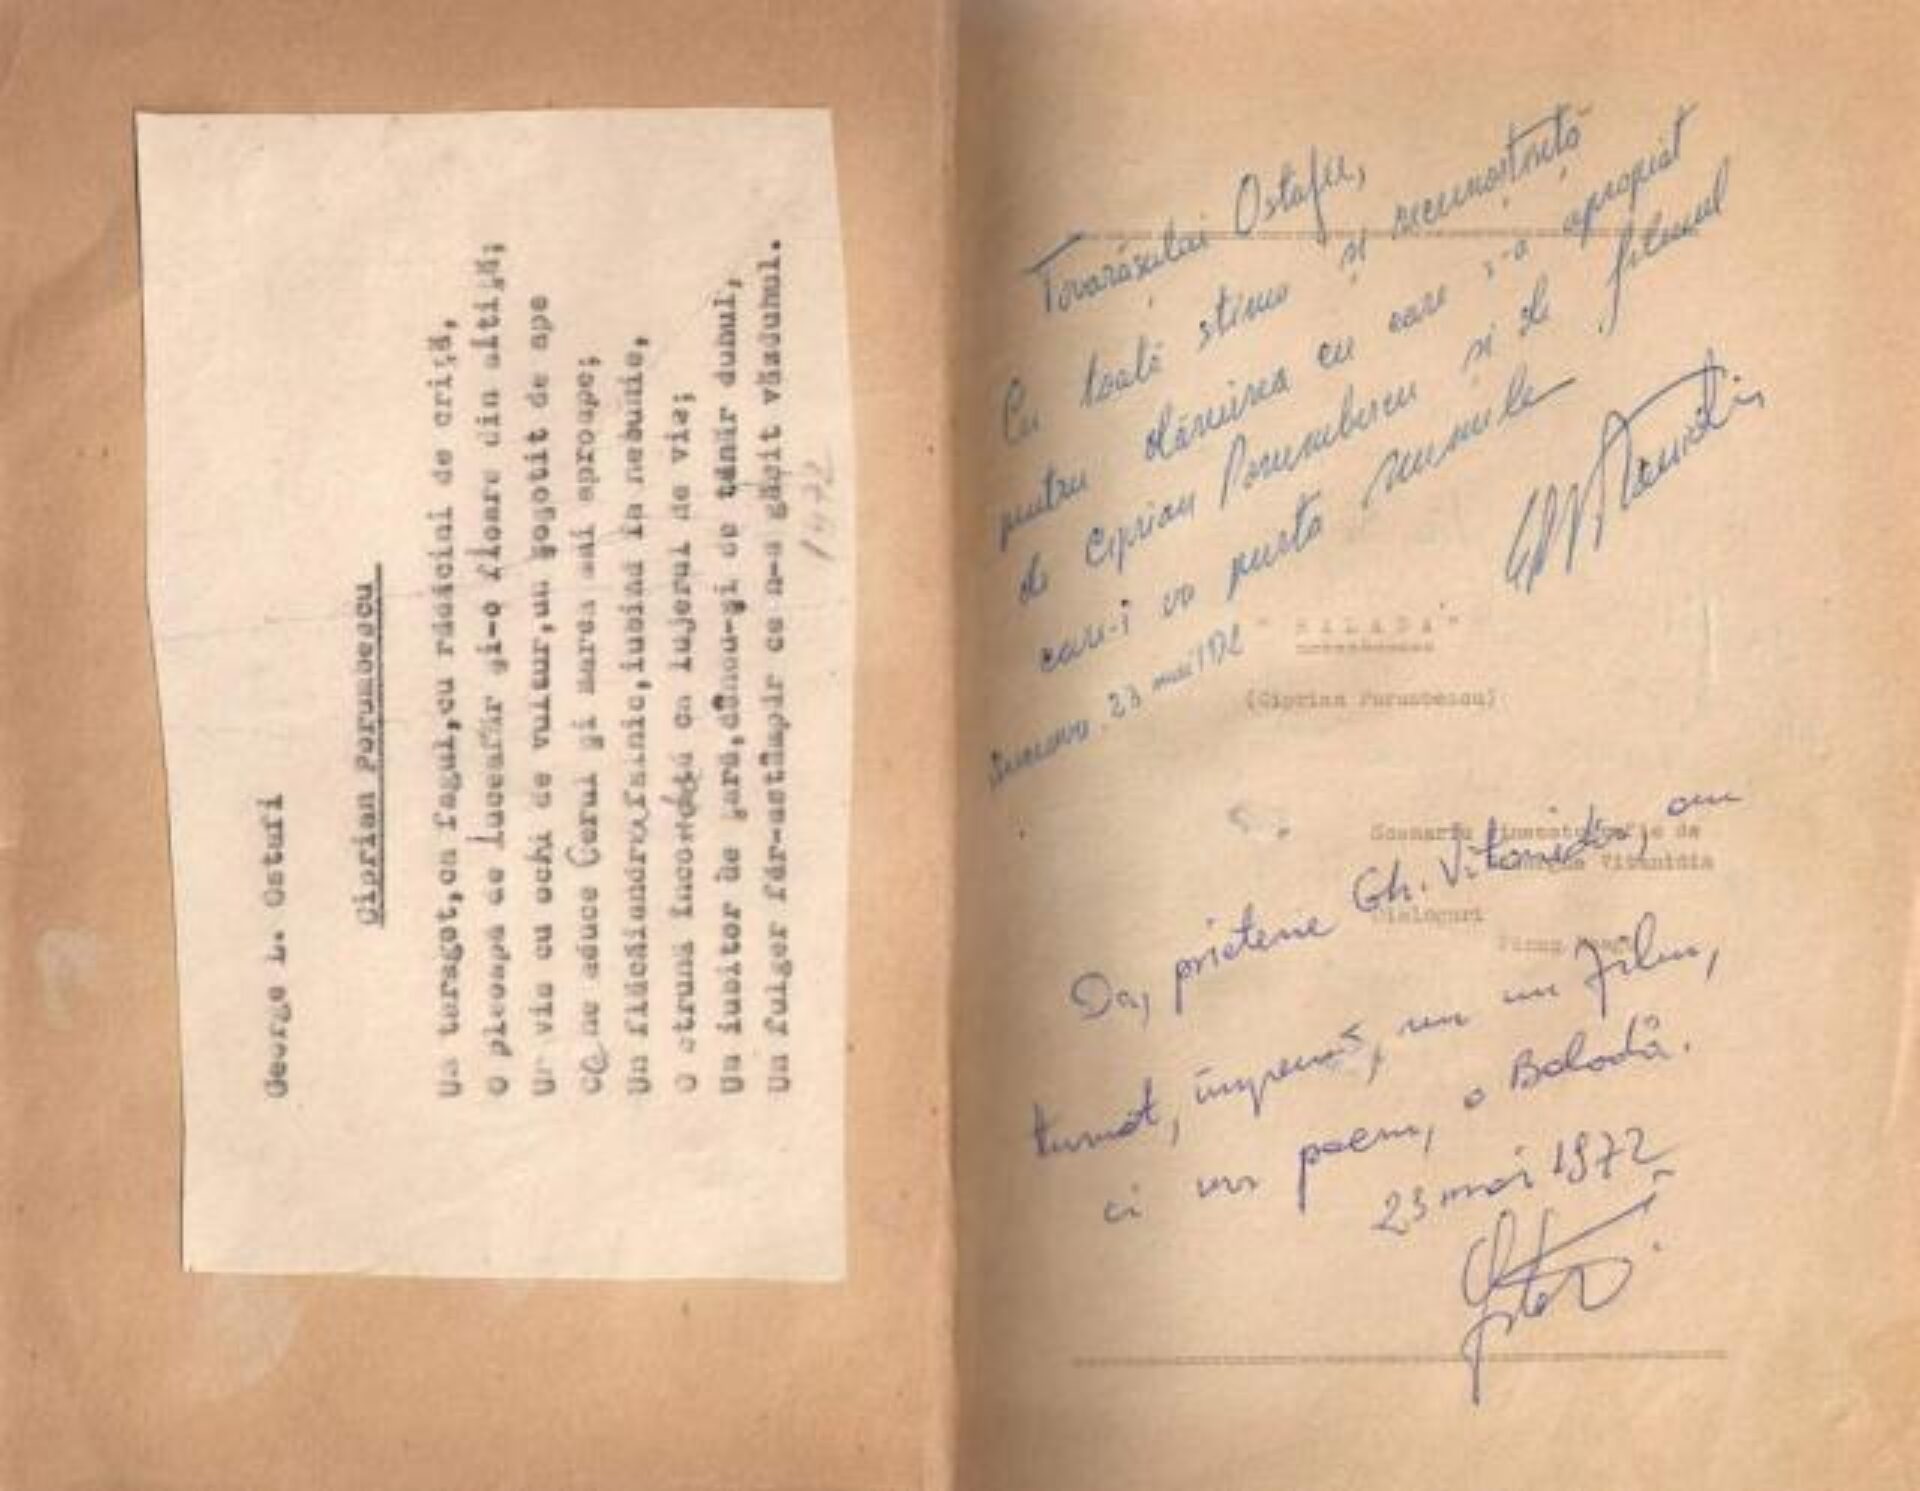 George L. Ostafi
Ciprian Porumbescu
Un taragot, ca fagul, cu rădăcini de criţă,
O pleoapă de Luceafăr şi-o floare din altiţă;
Un vis cu ochi de vultur, un gogotit de ape
Ce ne aduce Cerul şi marea mai aproape;
Un flăcăiandru fainic, iubind în nebunie,
O strună încordată ca lujerul de vie;
Un iubitor de ţară, dîndu-şi de tânăr duhul,
Un fulger făr-astîmpăr ce n-a găsit văzduhul.
1972
Tovarăşului Ostafii,
Cu toată stima şi recunoştinţă
pentru dăruirea cu care s-a apropiat
de Ciprian Porumbescu şi de filmul
care-i va purta numele
Suceava 23 mai 1972
" BALADA "
(Ciprian Porumbescu)
Scenariu cinematografic de
Gheorghe Vitanidis
Dialoguri
Da, prietene Gh. Vitanidis, am
turnat, împreună, nu un film,
ci un poem, o Baladă.
23 mai 1972